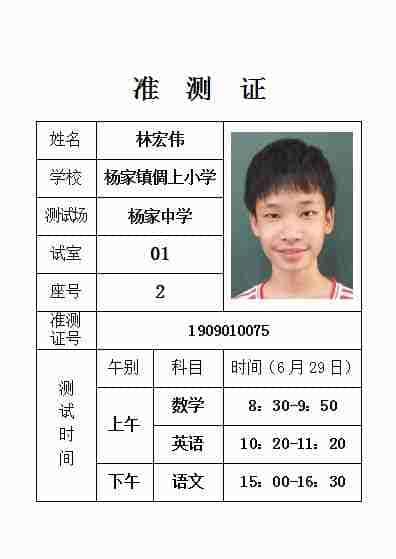 准 测 证
姓名 林宏伟
学校 杨家镇倜上小学
测试场 杨家中学
试室 01
座号 2
准测
证号 1909010075
测试时间 午别 科目 时间（6月29日）
上午 数学 8：30-9：50
英语 10：20-11：20
下午 语文 15：00-16：30